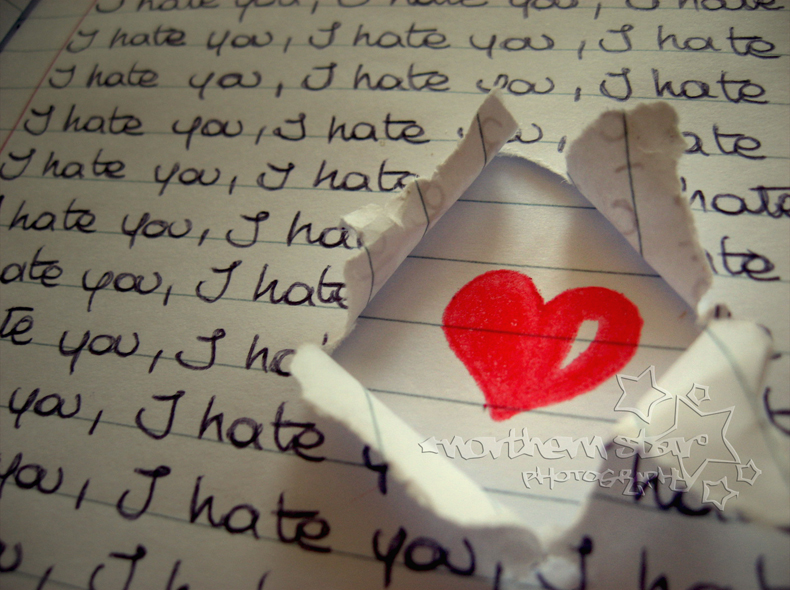 I hate you, I hate you, I hate
I hate you, I hate you, I hate
I hate you, I hate you, I hate
I hate you, I hate you, hate
I hate you, I hate hate
hate you, I ha te
ate you, I hate
te you, I ha
you, I hate y
you, I hate
you, I hate you, I hate
northern star
PHOTOGRAPHY